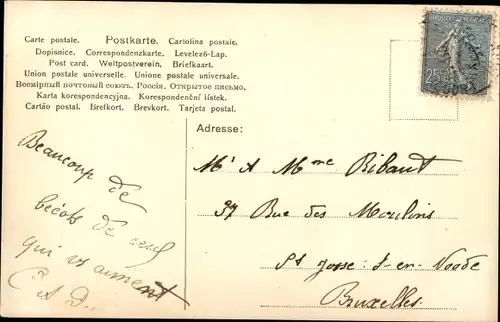 Carte postale. Postkarte. Cartolina postale.
Dopisnice. Correspondenzkarte. Levelező-Lap.
Post card. Weltpostverein. Briefkaart.
Union postale universelle. Unione postale universale.
Всемірный почтовый союзъ. Россія. Открытое письмо.
Karta korespondencyjna. Korespondenční lístek.
Cartão postal. Brefkort. Brevkort. Tarjeta postal.
Adresse:
Beaucoup de
bécots de ceux
qui vs aiment
M^r A M^me Ribaut
37 Rue des Moulins
St Josse-t-en-Noode
Bruxelles.
25